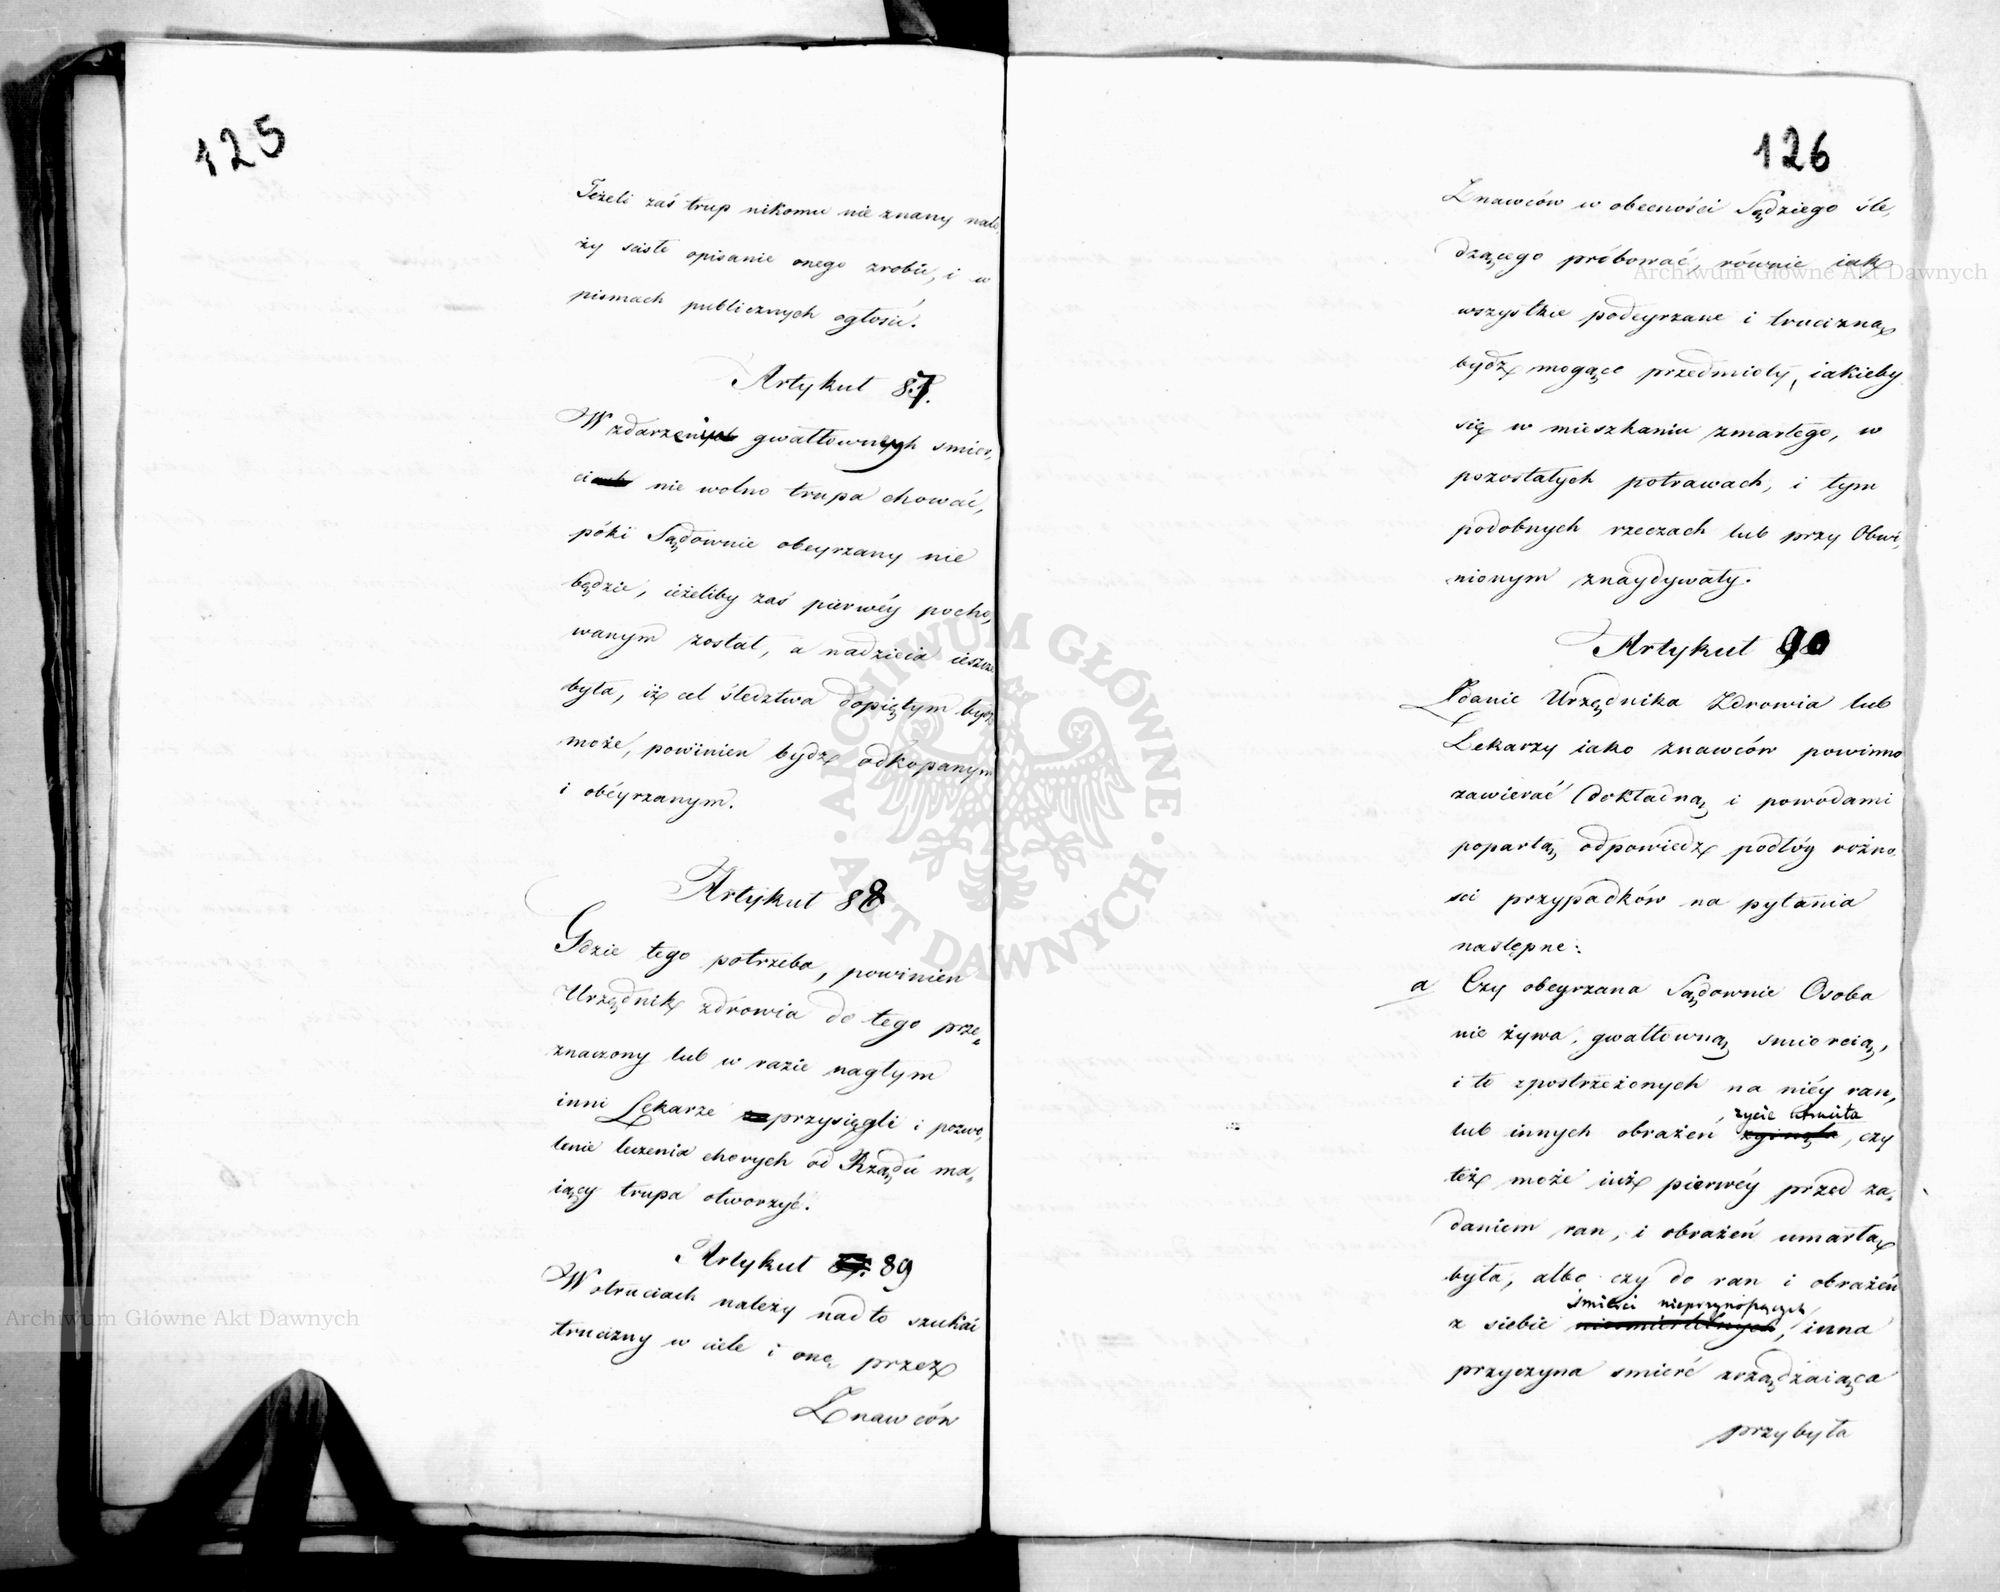 125
Jeżeli zaś trup nikomu nie znany nale,
ży scisłe opisanie onego zrobić, i w
pismach publicznych ogłosić.
Artykuł 87.
W zdarzeniach gwałtownych smier,
ciach nie wolno trupa chować,
póki Sądownie obeyrzany nie
będzie, ieżeliby zaś pierwéy pocho,
wanym został, a nadzieia ieszcze
była, iż cel śledztwa dopiętym bydź
może, powinien bydź odkopanym
i obéyrzanym.
Artykuł 88
Gdzie tego potrzeba, powinien
Urzędnik zdrowia do tego prze,
znaczony lub w razie nagłym
inni Lekarze przysięgli i pozwo,
lenie leczenia chorych od Rządu ma,
iący trupa otworzyć.
Artykuł 89
W otruciach należy nadto szukać
trucizny w ciele i onę przez
Znawców
126
Znawców w obecności Sędziego śle,
dzącego próbować, równie iak
wszystkie podeyrzane i trucizną
bydź mogące przedmioty, iakieby
się w mieszkaniu zmarłego, w
pozostałych potrawach, i tym
podobnych rzeczach lub przy Obwi,
nionym znaydywały.
Artykuł 90
Zdanie Urzędnika Zdrowia lub
Lekarzy iako znawców powinno
zawierać dokładną i powodami
popartą odpowiedź podłóg rożno
sci przypadków na pytania
następne:
a Czy obeyrzana Sądownie Osoba
nie żywa, gwałtowną smiercią,
i to zpostrzeżonych na niéy ran,
życie straciła
lub innych obrażeń zginęła, czy
też może iuż pierwéy przed za,
daniem ran, i obrażeń umarłą
była, albo czy do ran i obrażeń
śmierci nieprzynoszących
z siebie niesmiertelnych, inna
przyczyna smierć zrządzaiąca
przybyła
Archiwum Główne Akt Dawnych
Archiwum Główne Akt Dawnych
ARCHIWUM GŁÓWNE · AKT DAWNYCH ·